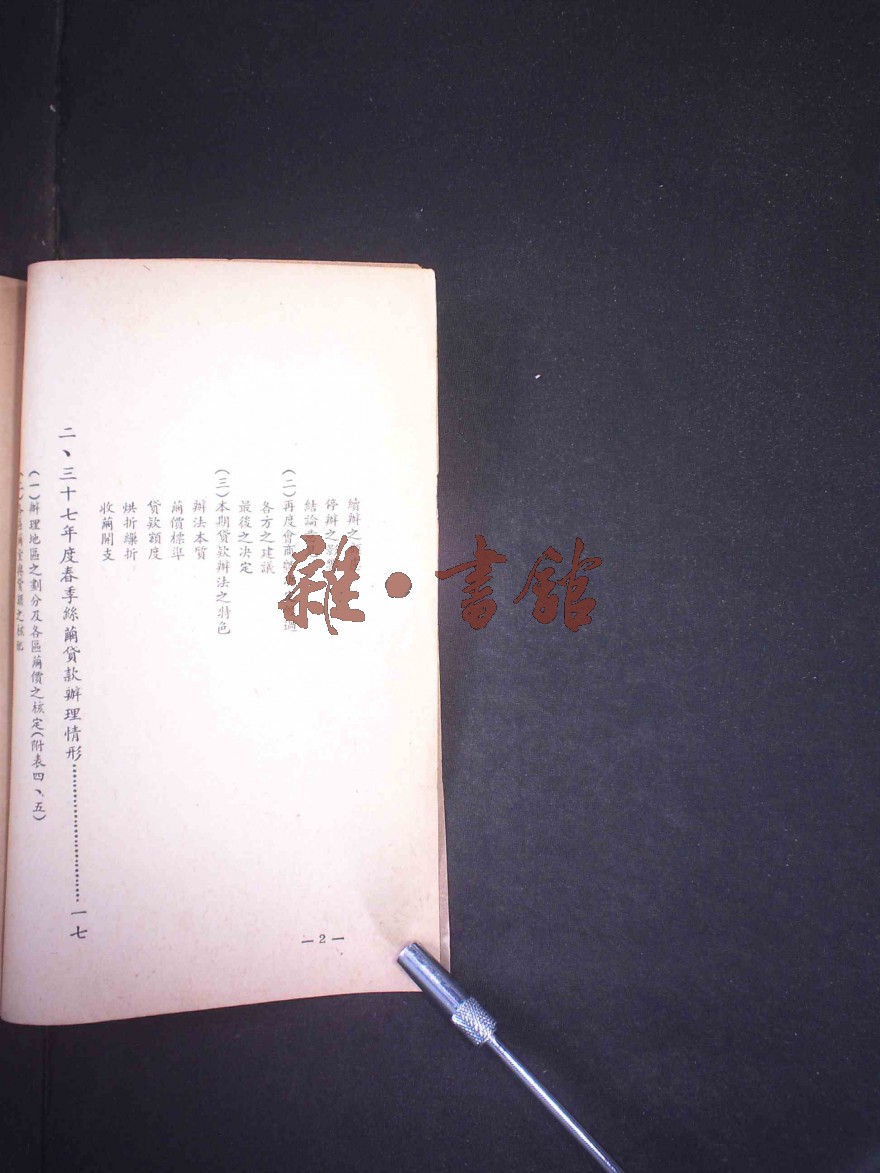 續辦之
停辦之影
結論
(二)再度會商
各方之建議
最後之決定
(三)本期貸款辦法之特色
辦法本質
繭價標準
貸款額度
烘折繅折
收繭開支
二、三十七年度春季絲繭貸款辦理情形…………………………一七
(一)辦理地區之劃分及各區繭價之核定(附表四、五)
—2—
雜·書館